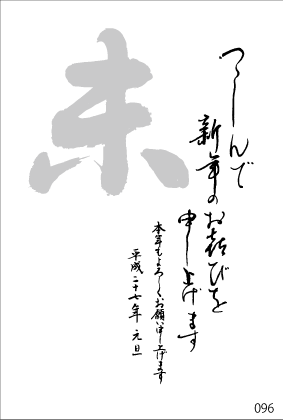 未
つゝしんで
新年のお喜びを
申し上げます
本年もよろしくお願い申し上げます
平成二十七年 元旦
096